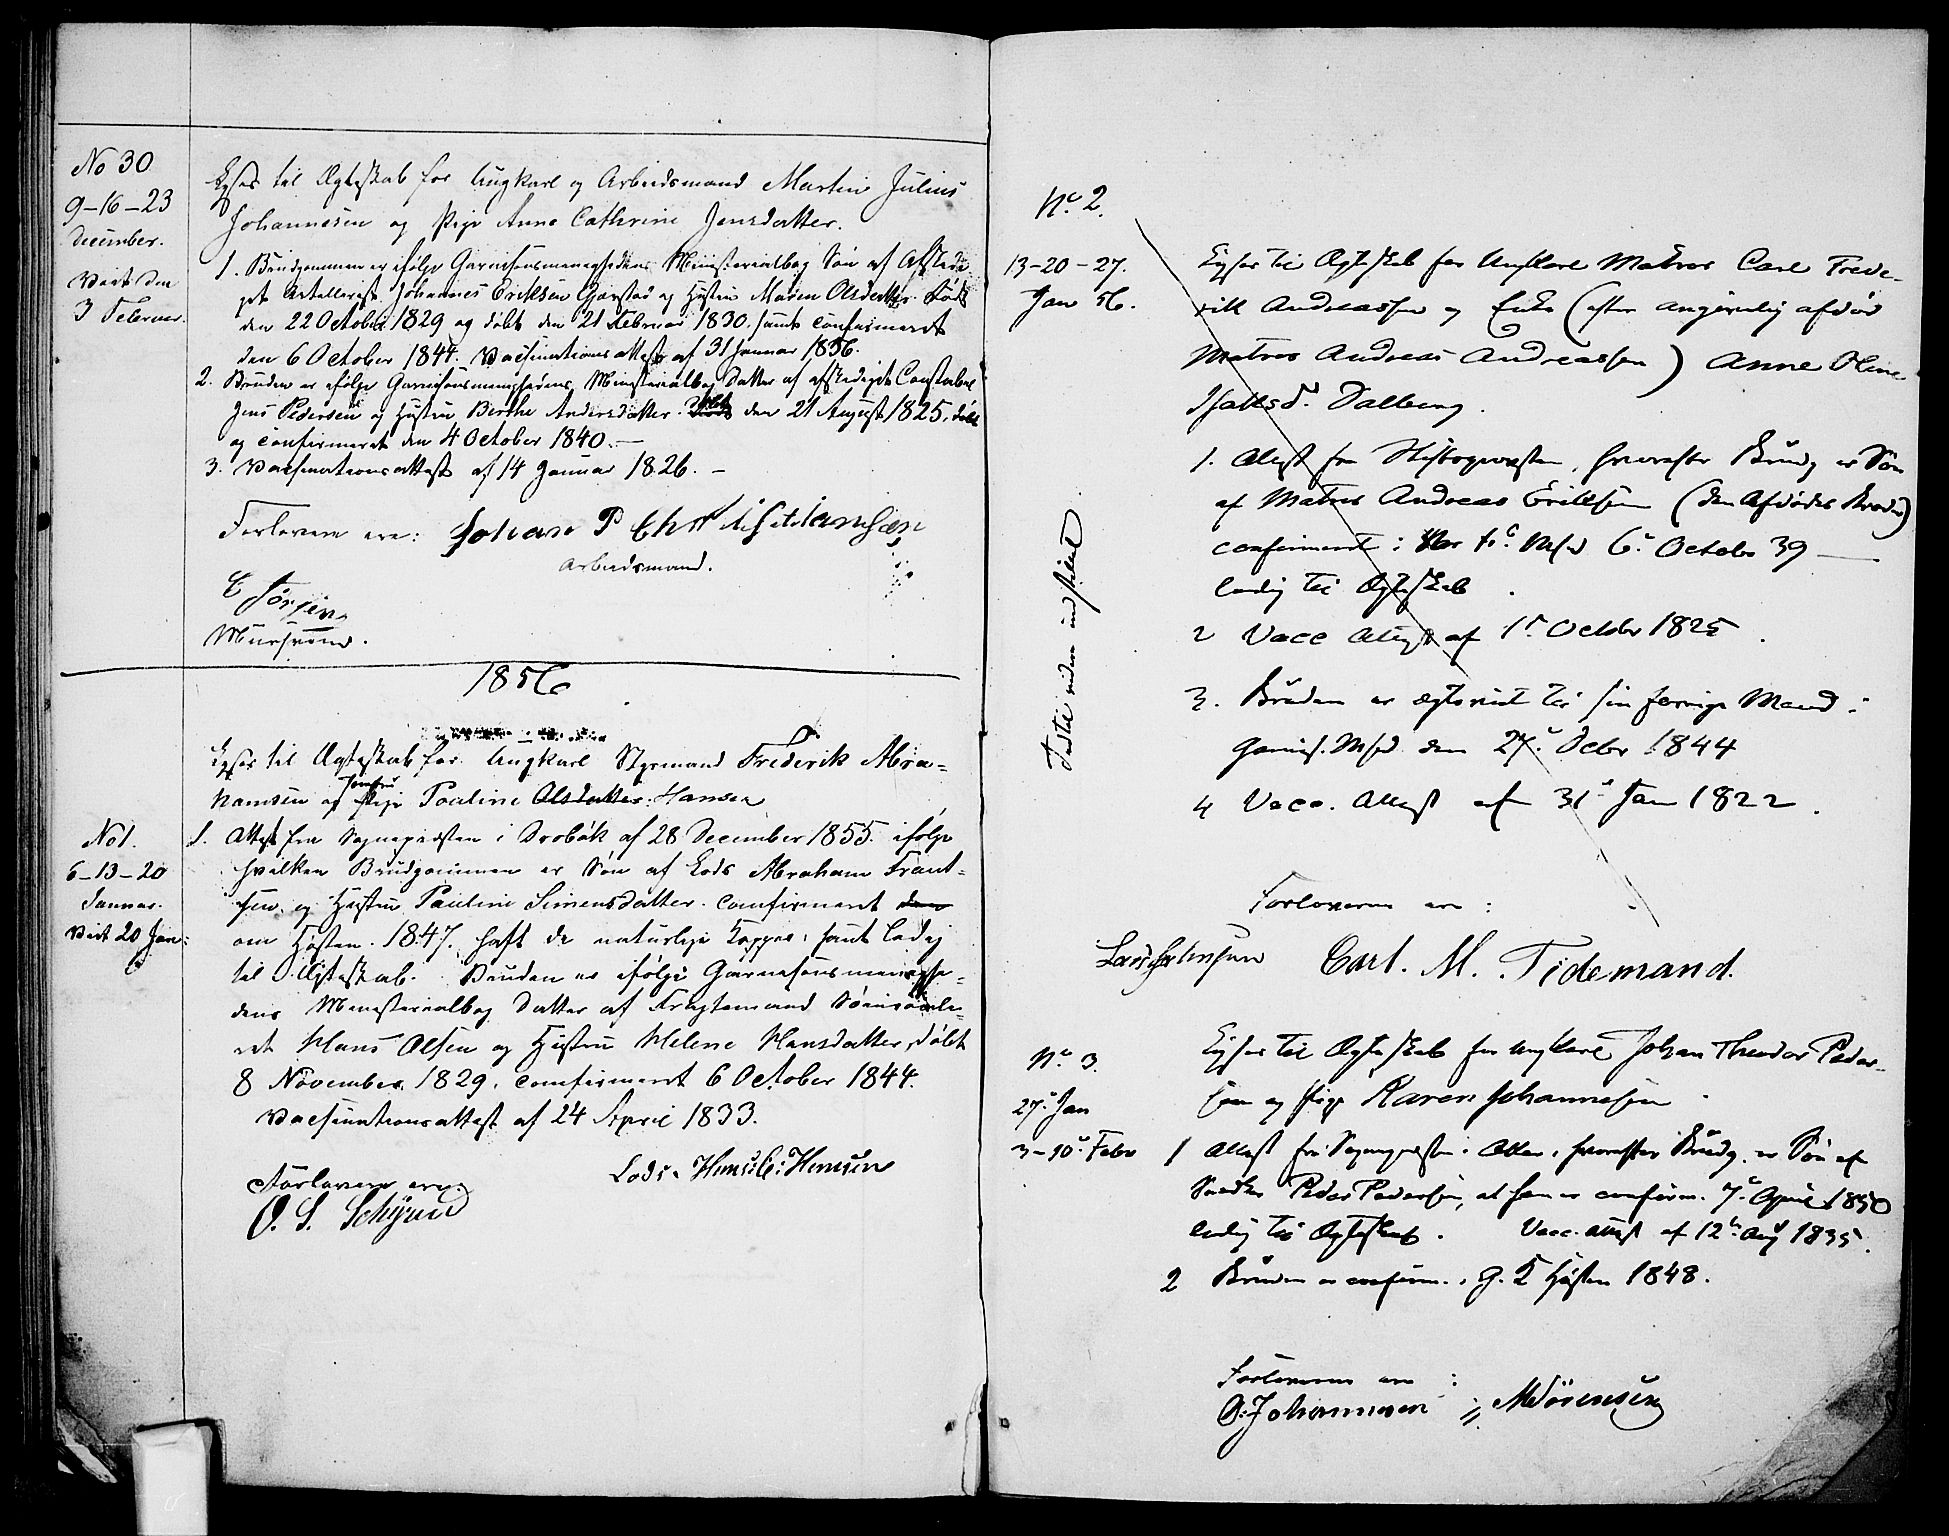 No 30
9-16-23
December.
Viet den
3 Februar.
Lyses til Ægteskab for Ungkarl og Arbeidsmand Martin Julius
Johannesen og Pige Anne Cathrine Jensdatter.
1. Brudgommen er ifølge Garnisonsmenighedens Ministerialbog Søn af Afskedi-
get Artillerist Johannes Eriksen Gjerstad og Hustru Maren Olsdatter. Født
den 22 October 1829 og døbt den 21 Februar 1830. samt confirmeret
den 6 October 1844. Vaccinationsattest af 31 Januar 1856.
2. Bruden er ifølge Garnisonsmenighedens Ministerialbog Datter af afskediget Constabel
Jens Pedersen og Hustru Berthe Andersdatter. den 21 August 1825. døbt
og confirmeret den 4 October 1840.—
3. Vaccinationsattest af 14 Januar 1826. –
Forlovere ere: Johan P Chr
Arbeidsmand.
Muursvend.
1856
Lyses til Ægteskab for Ungkarl Styrmand Frederik Abra-
hamsen og Jomfru Pige Pauline Olsdatter. Hansen
No 1.
6-13-20
Januar.
Viet 20 Jan:
1. Attest fra Sognepræsten i Drøbak af 28 December 1855. ifølge
hvilken Brudgommen er Søn af Lods Abraham Frant-
sen og Hustru Pauline Simensdatter. confirmeret den
om Høsten. 1847. haft de naturlige Kopper, samt ledig
til Ægteskab. Bruden er ifølge Garnisonsmenighe-
dens Ministerialbog Datter af Søeinroule-
ret Hans Olsen og Hustru Helene Hansdatter, døbt
8 November 1829. confirmeret 6 October 1844.
Vaccinationsattest af 24 April 1833.
Forlovere ere
Lods. Hansen
O. S.
No 2.
13-20-27.
Jan 56.
Lyses til Ægteskab for Ungkarl Matros Carl Frede-
rik Andreassen og Enke (efter angivelig afdøde
Matros Andreas Andreassen) Anne Oline
Dalberg.
1. Attest fra Stiftsprovsten, hvorefter Brudg er Søn
af Matros Andreas Eriksen (den Afdødes Broder)
confirmeret i Vor Fr. Mhd 6 October 39 —
ledig til Ægteskab.
2 Vacc Attest af 1 October 1825.
3. Bruden er ægteviet til sin forrige Mand i
Garnis. Mhd. den 27 Octbr 1844
4 Vacc. Attest af 31 Jan 1822.
Forloverne ere :
Carl. M. Tidemand.
No 3.
27. Jan
3-10. Febr
Lyses til Ægteskab for Ungkarl Johan Theodor Peder-
sen og Pige Karen Johannesen.
1 Attest fra Sognepræsten i Aker, hvorefter Brudg. er Søn af
Snedker Peder Pedersen, at han er confirm. 7. April 1850
ledig til Ægteskab. Vacc. attest af 12 Aug 1835.
2 Bruden er confirm. i G. K Høsten 1848.
Forloverne ere :
O: Johannesen M Sørensen